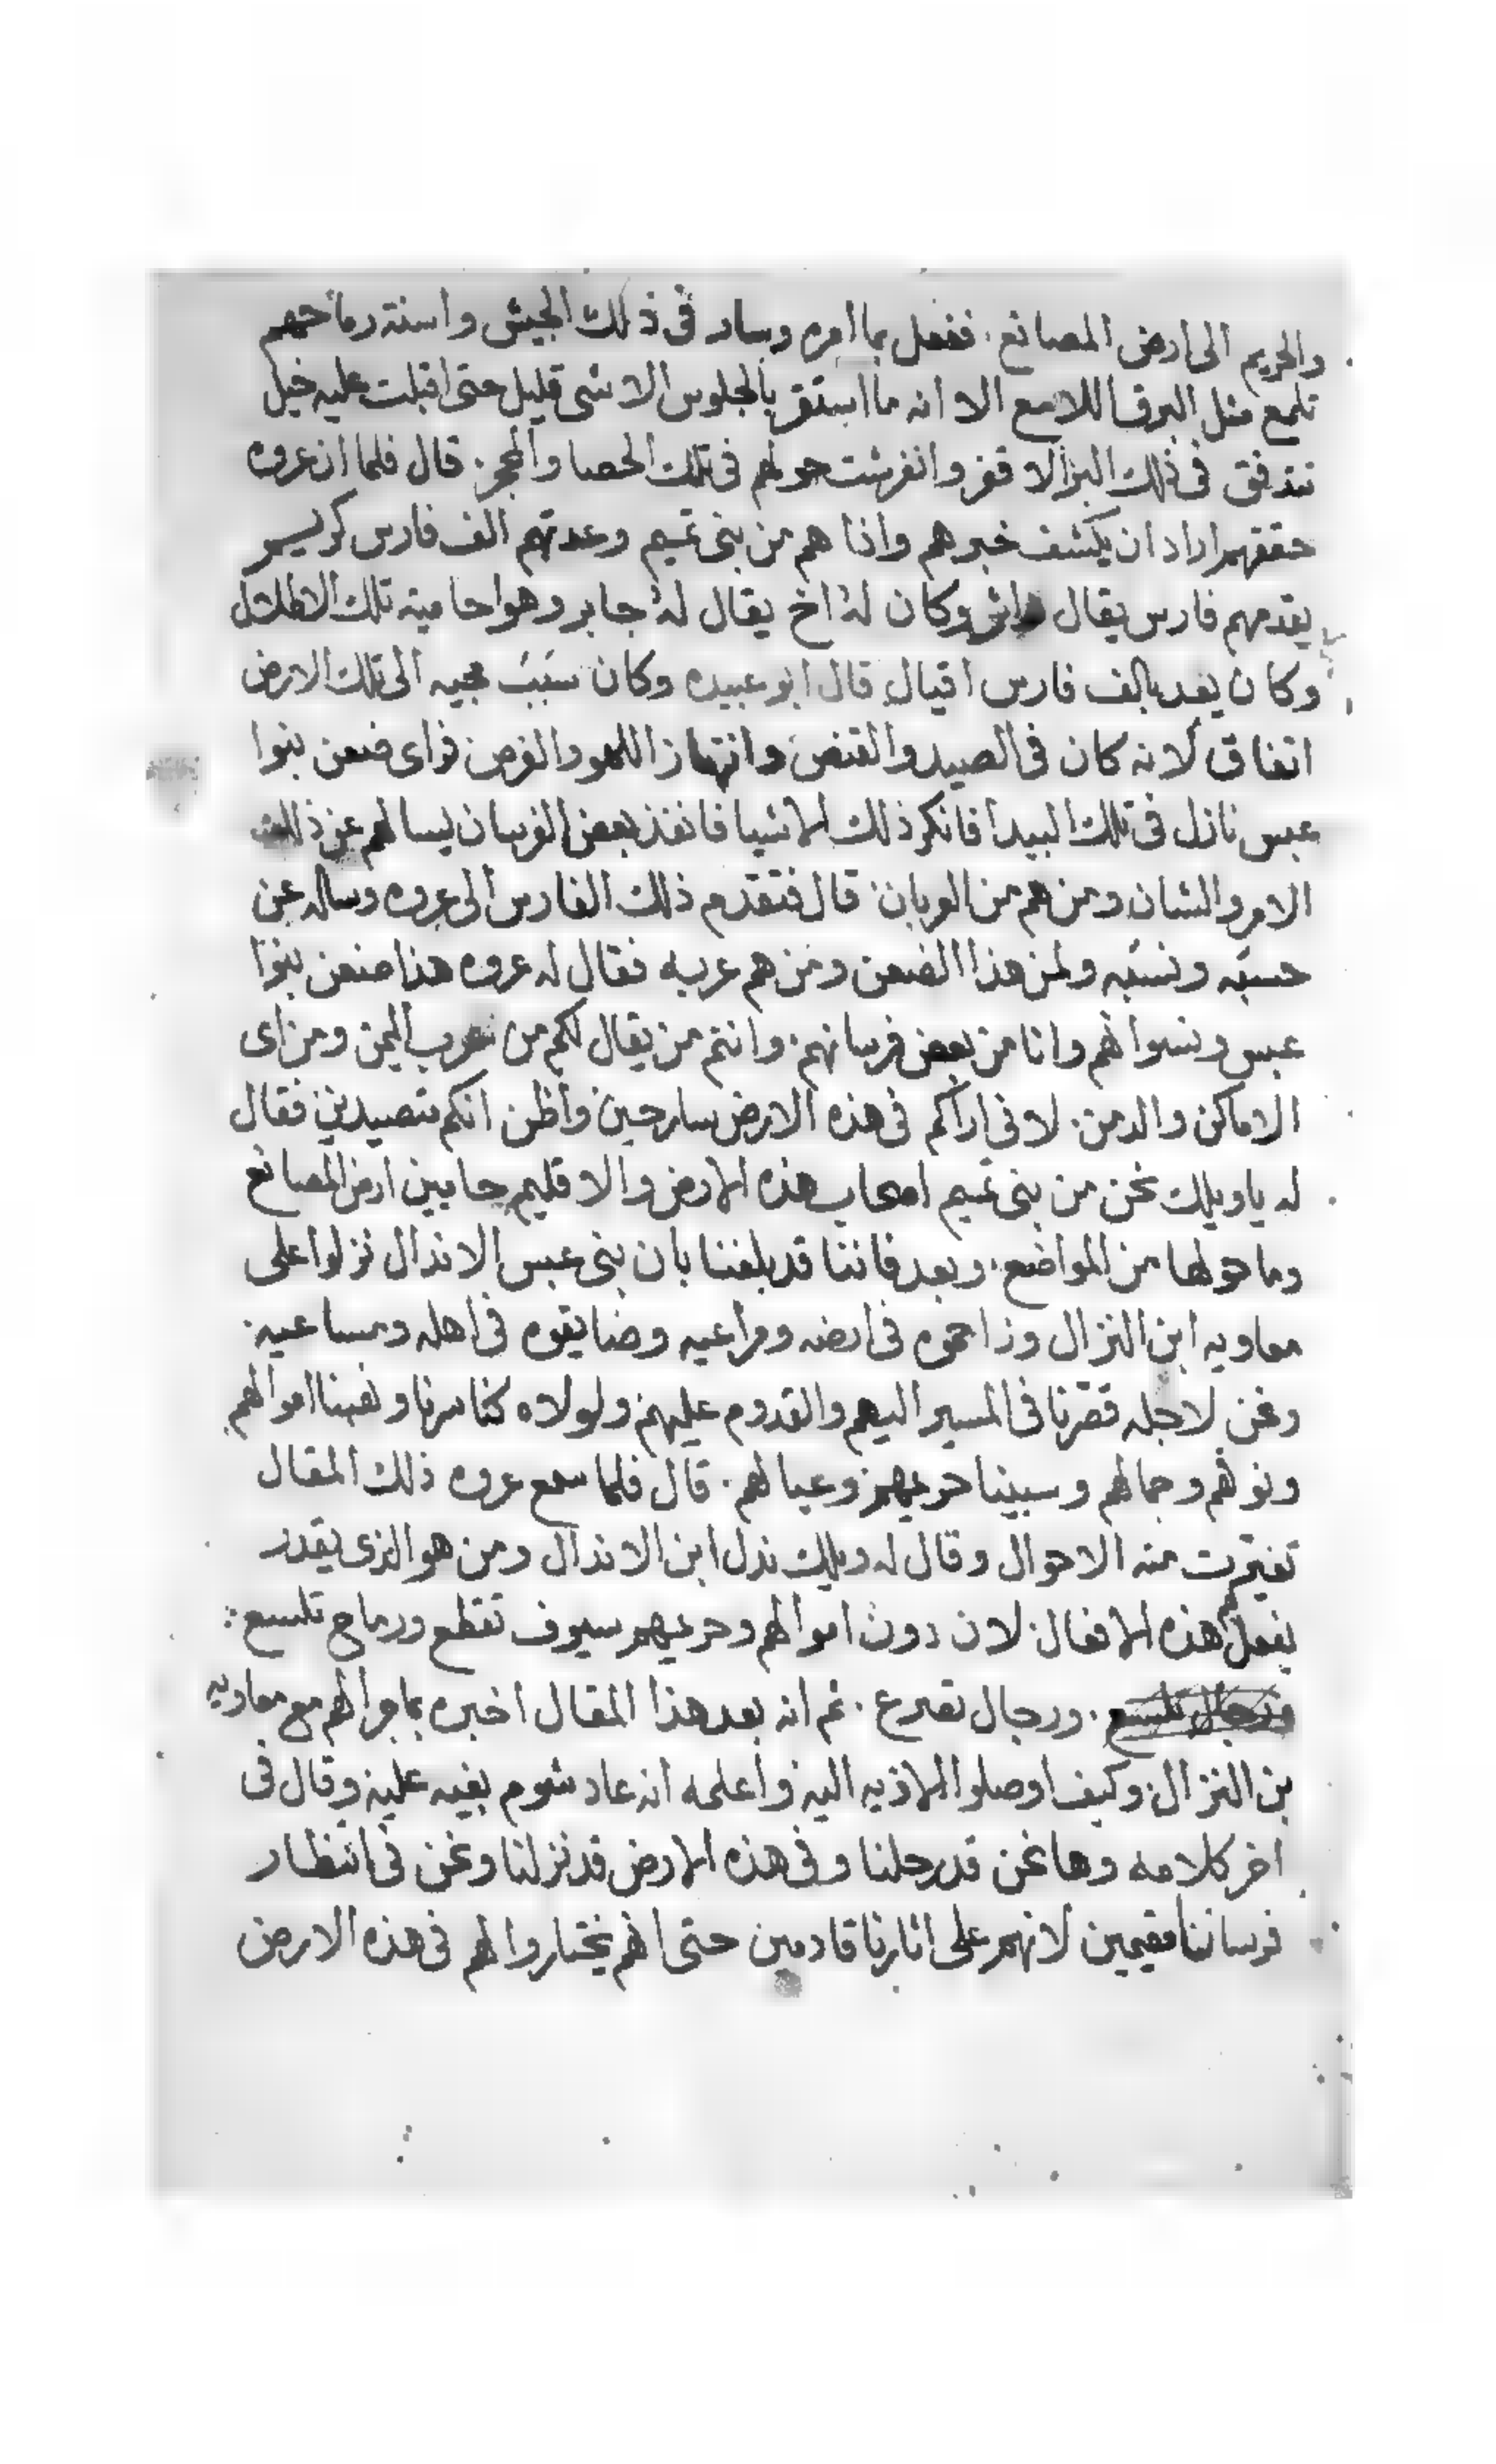 والحريم الى ارض المصانع. ففعل بما امره وسار فى ذلك الجيش واسنة رماحهم
تلمع مثل البرق اللامع الا انه ما استقر بالجلوس الا شى قليل حتى اقبلت عليه خيل
تتدفق فى ذلك البر الاقفر وانفرشت حولهم فى تلك الحصا والحجر. قال فلما ان عروه
حققهم اراد ان يكشف خبرهم واذا هم من بنى تميم وعدتهم الف فارس
يقدمهم فارس يقال وكان له اخ يقال له جابر وهوا حامية تلك الاطلال
وكان يعد بالف فارس اقيال قال ابو عبيده وكان سبب مجيه الى تلك الارض
اتفاق لانه كان فى الصيد والقنص وانتهاز اللهو والفرص فراى ضعن بنوا
عبس نازل فى تلك البيدا فانكر ذلك الاشيا فانفذ بعض الفرسان ليسالهم عن ذلك
الامر والشان ومن هم من العربان. قال فتقدم ذلك الفارس الى عروه وساله عن
حسبه ونسبه ولمن هذا الضعن ومن هم عربه فقال له عروه هذا ضعن بنوا
عبس ونسوانهم وانا من بعض فرسانهم. وانتم من يقال لكم من عرب اليمن ومن اى
الاماكن والدمن. لانى اراكم فى هذه الارض سارحين واظن انكم متصيدين فقال
له ياويلك نحن من بنى تميم اصحاب هذه الارض والاقليم حامين ارض المصانع
وما حولها من المواضع. وبعد فاننا قد بلغنا بان بنى عبس الاندال نزلوا على
معاويه ابن النزال وزاحموه فى ارضه ومراعيه وضايقوه فى اهله ومساعيه.
ونحن لاجله قصرنا فى المسير اليهم والقدوم عليهم ولولاه كنا سرنا ونهبنا اموالهم
ونوقهم وجمالهم وسبينا حريمهم وعيالهم. قال فلما سمع عروه ذلك المقال
تغيرت منه الاحوال وقال له ويلك ندل ابن الاندال ومن هو الذى يقدر
يفعل هذه الافعال. لان دون اموالهم وحريمهم سيوف تقطع ورماح تلسع:
ورجال تلسع. ورجال تصرع. ثم انه بعد هذا المقال اخبره بما جرا لهم مع معاويه
بن النزال. وكيف اوصلوا الاذيه اليه واعلمه انه عاد شوم بغيه عليه وقال فى
اخر كلامه وها نحن قد رحلنا وفى هذه الارض قد نزلنا ونحن فى انتظار
فرساننا مقيمين لانهم على اثارنا قادمين حتى انهم يختاروا لهم فى هذه الارض